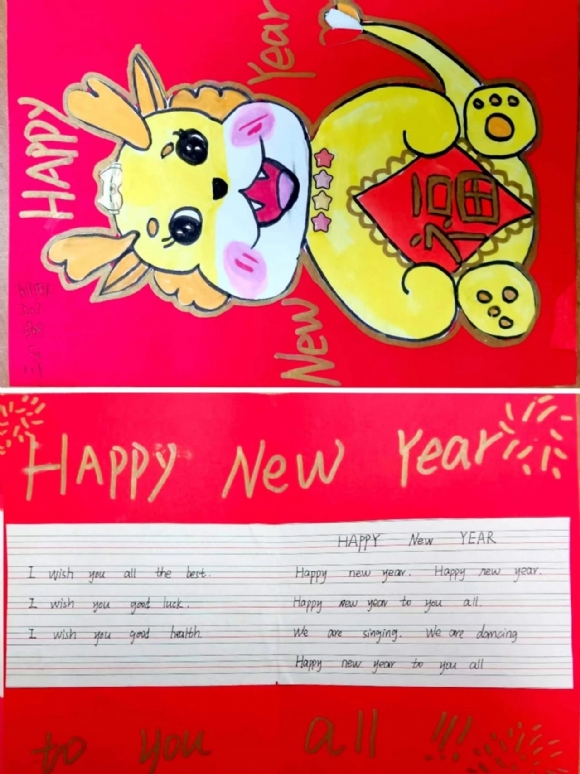 HAPPY
New Year
福
HAPPY New Year
I wish you all the best.
I wish you good luck.
I wish you good health.
HAPPY New YEAR
Happy new year. Happy new year.
Happy new year to you all.
We are singing. We are dancing
Happy new year to you all
to you all !!!